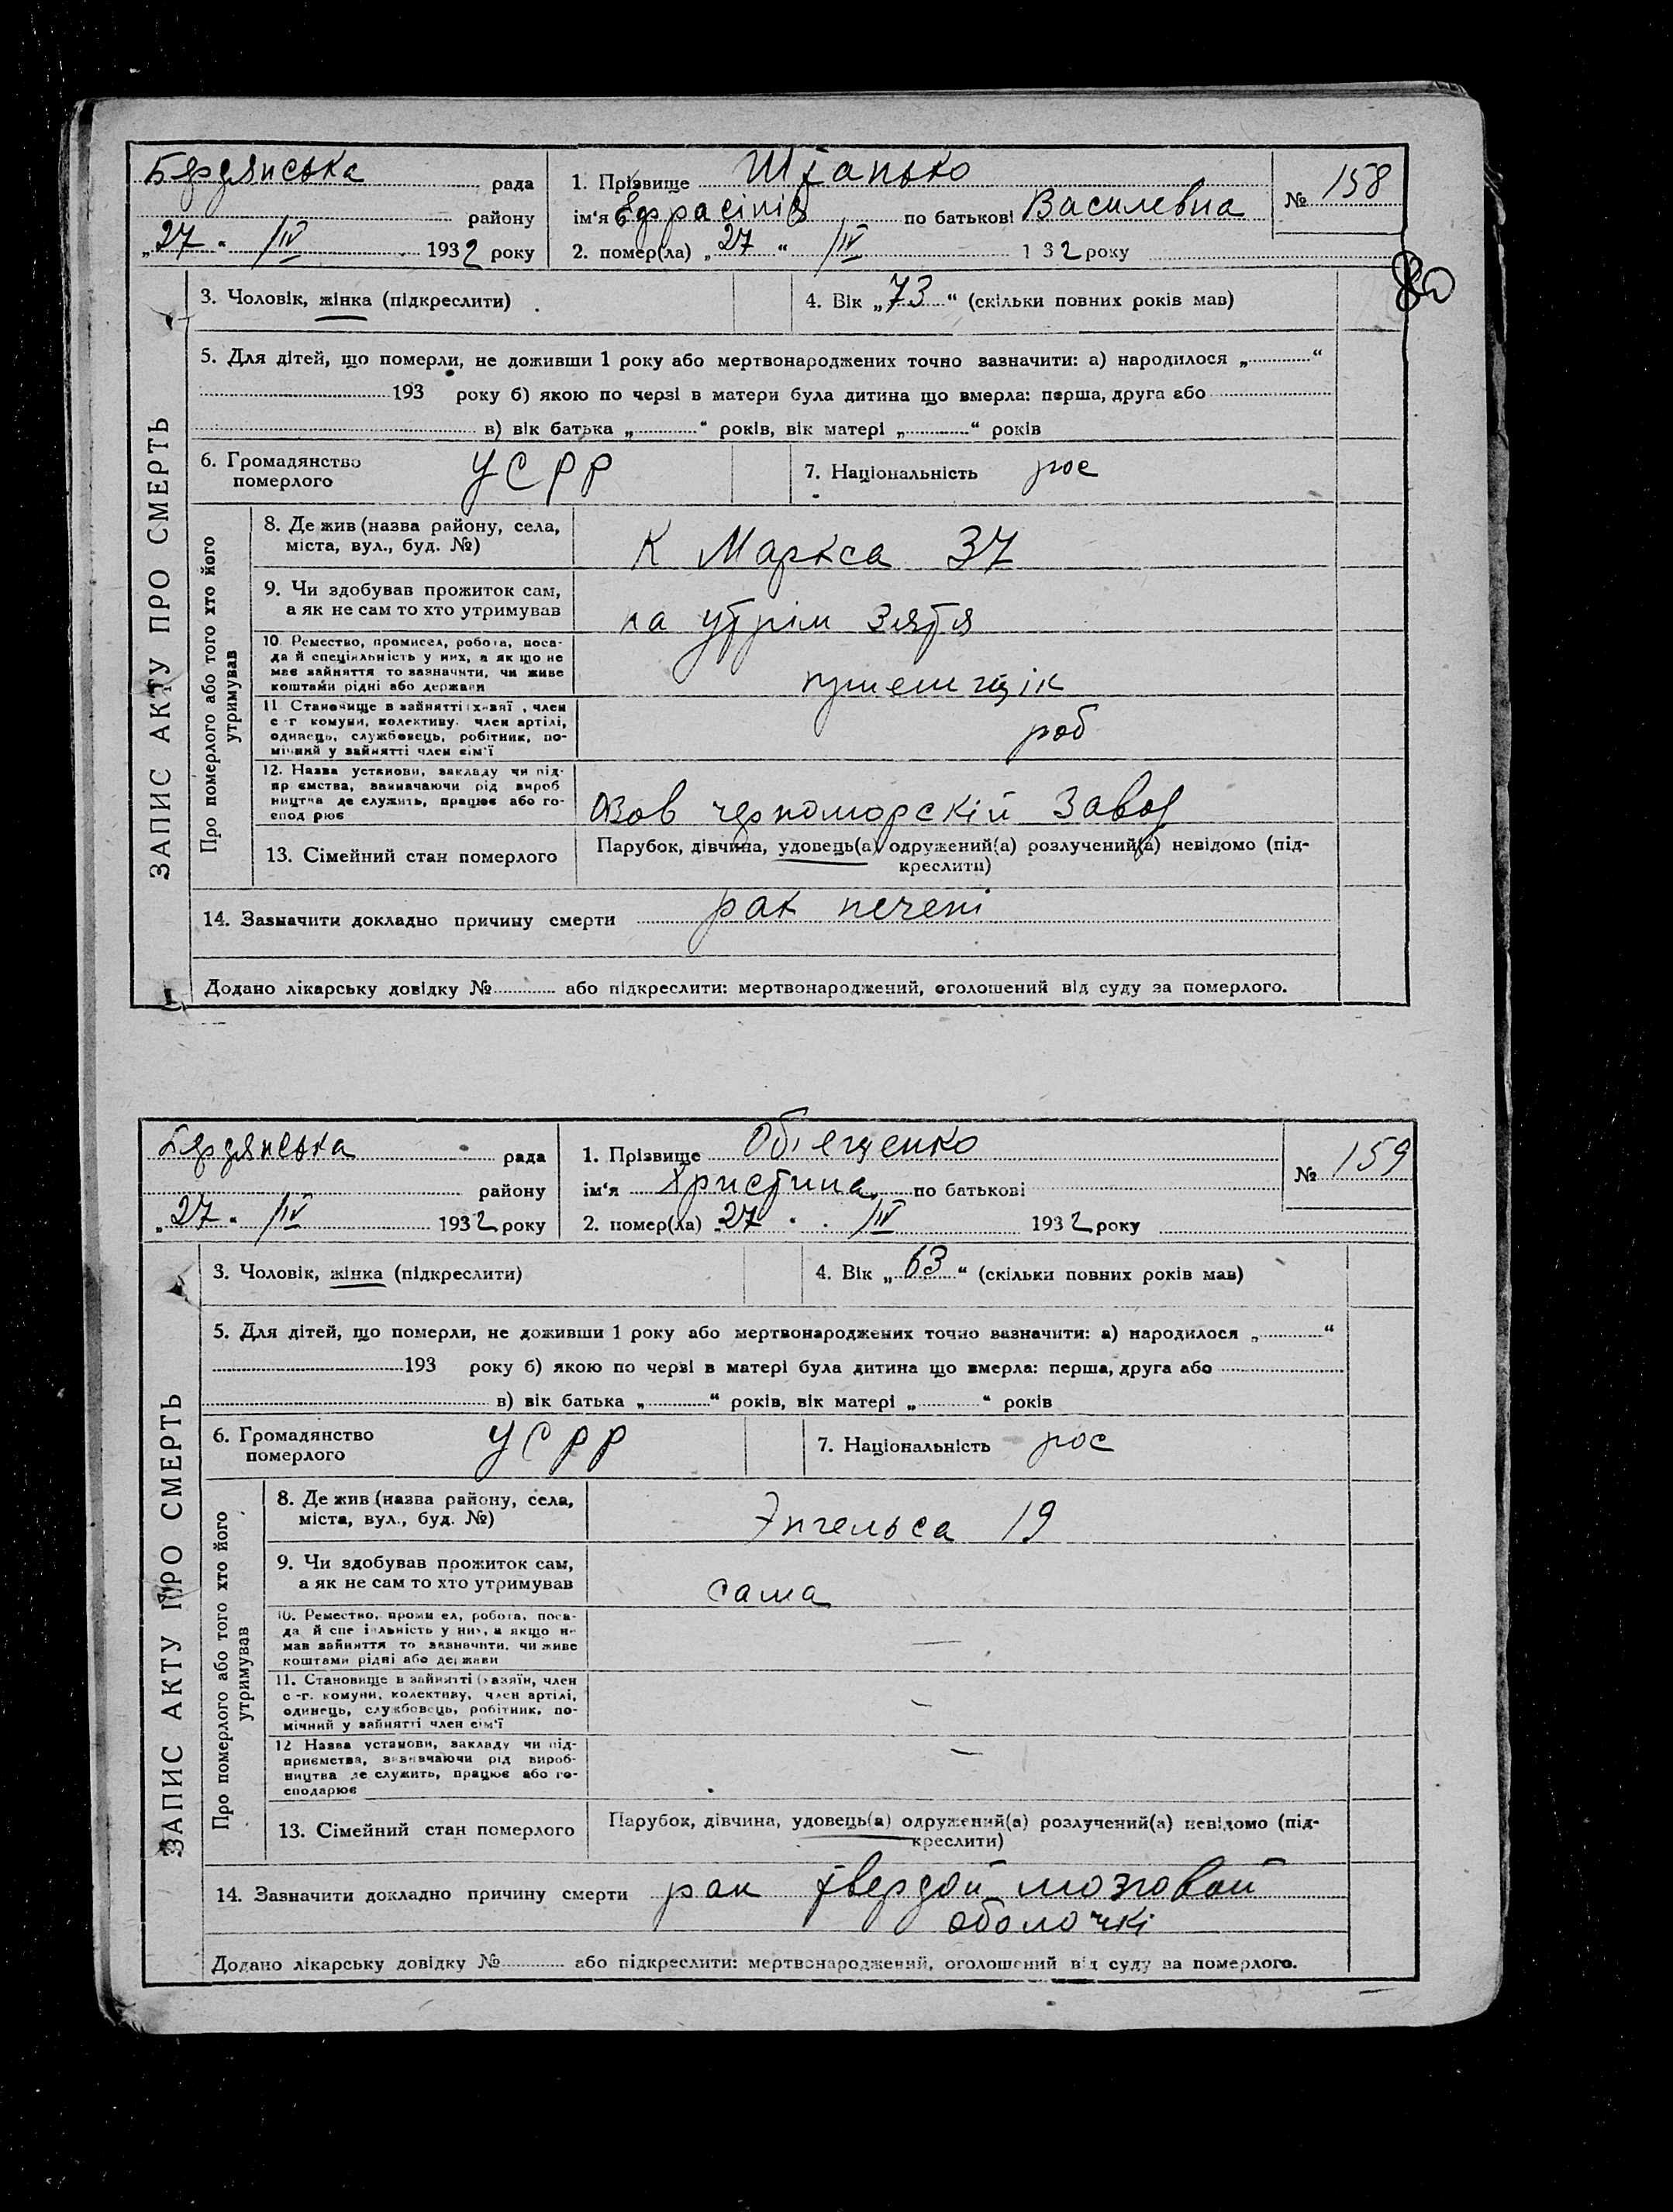 Бердянська рада
1. Прізвище
№ 158
району
ім'я Єфрасінія по батькові Василевна
„27“ /IV 1932 року
2. помер(ла) „27“ /IV 1 32 року
80
3. Чоловік, жінка (підкреслити)
4. Вік „73“ (скільки повних років мав)
5. Для дітей, що померли, не доживши 1 року або мертвонароджених точно зазначити: а) народилося „ “
193 року б) якою по черзі в матери була дитина що вмерла: перша, друга або
в) вік батька „ “ років, вік матері „ “ років
6. Громадянство померлого УСРР
7. Національність рос
ЗАПИС АКТУ ПРО СМЕРТЬ
Про померлого або того хто його утримував
8. Де жив (назва району, села,
міста, вул., буд. №)
К Маркса 37
9. Чи здобував прожиток сам,
а як не сам то хто утримував
на утрім зятя
10. Ремество, промисел, робота, поса-
да й спеціяльність у них, а як що не
має зайняття то зазначити, чи живе
коштами рідні або держави
11. Становище в зайнятті (х-зяї , член
с-г комуни, колективу, член артілі,
одинець, службовець, робітник, по-
мічний у зайнятті член сім'ї
роб
12. Назва установи, закладу чи під-
пр ємства, зазначаючи рід вироб
ництва де служить, працює або го-
спод рює
Азов черноморскій Завод
13. Сімейний стан померлого
Парубок, дівчина, удовець(а) одружений(а) розлучений(а) невідомо (під-
креслити)
14. Зазначити докладно причину смерти рак печені
Додано лікарську довідку № або підкреслити: мертвонароджений, оголошений від суду за померлого.
Бердянська рада
1. Прізвище Об'єщенко
№ 159
району
ім'я Христина по батькові
„27“ /IV 1932 року
2. помер(ла) 27 /IV 1932 року
3. Чоловік, жінка (підкреслити)
4. Вік „63“ (скільки повних років мав)
5. Для дітей, що померли, не доживши 1 року або мертвонароджених точно зазначити: а) народилося „ “
193 року б) якою по черзі в матері була дитина що вмерла: перша, друга або
в) вік батька „ “ років, вік матері „ “ років
6. Громадянство померлого УСРР
7. Національність рос
ЗАПИС АКТУ ПРО СМЕРТЬ
Про померлого або того хто його утримував
8. Де жив (назва району, села,
міста, вул., буд. №)
Энгельса 19
9. Чи здобував прожиток сам,
а як не сам то хто утримував
сама
10. Ремество, проми ел, робота, поса-
да й спе іяльність у них, а якщо не
мав зайняття то зазначити, чи живе
коштами рідні або держави
—
11. Становище в зайнятті (хазяїн, член
с-г. комуни, колективу, член артілі,
одинець, службовець, робітник, по-
мічний у зайнятті член сім'ї
—
12 Назва установи, закладу чи під-
приємства, зазначаючи рід вироб-
ництва де служить, працює або го-
сподарює
—
13. Сімейний стан померлого
Парубок, дівчина, удовець(а) одружений(а) розлучений(а) невідомо (під-
креслити)
14. Зазначити докладно причину смерти рак твердой мозговой
оболочкі
Додано лікарську довідку № або підкреслити: мертвонароджений, оголошений від суду за померлого.